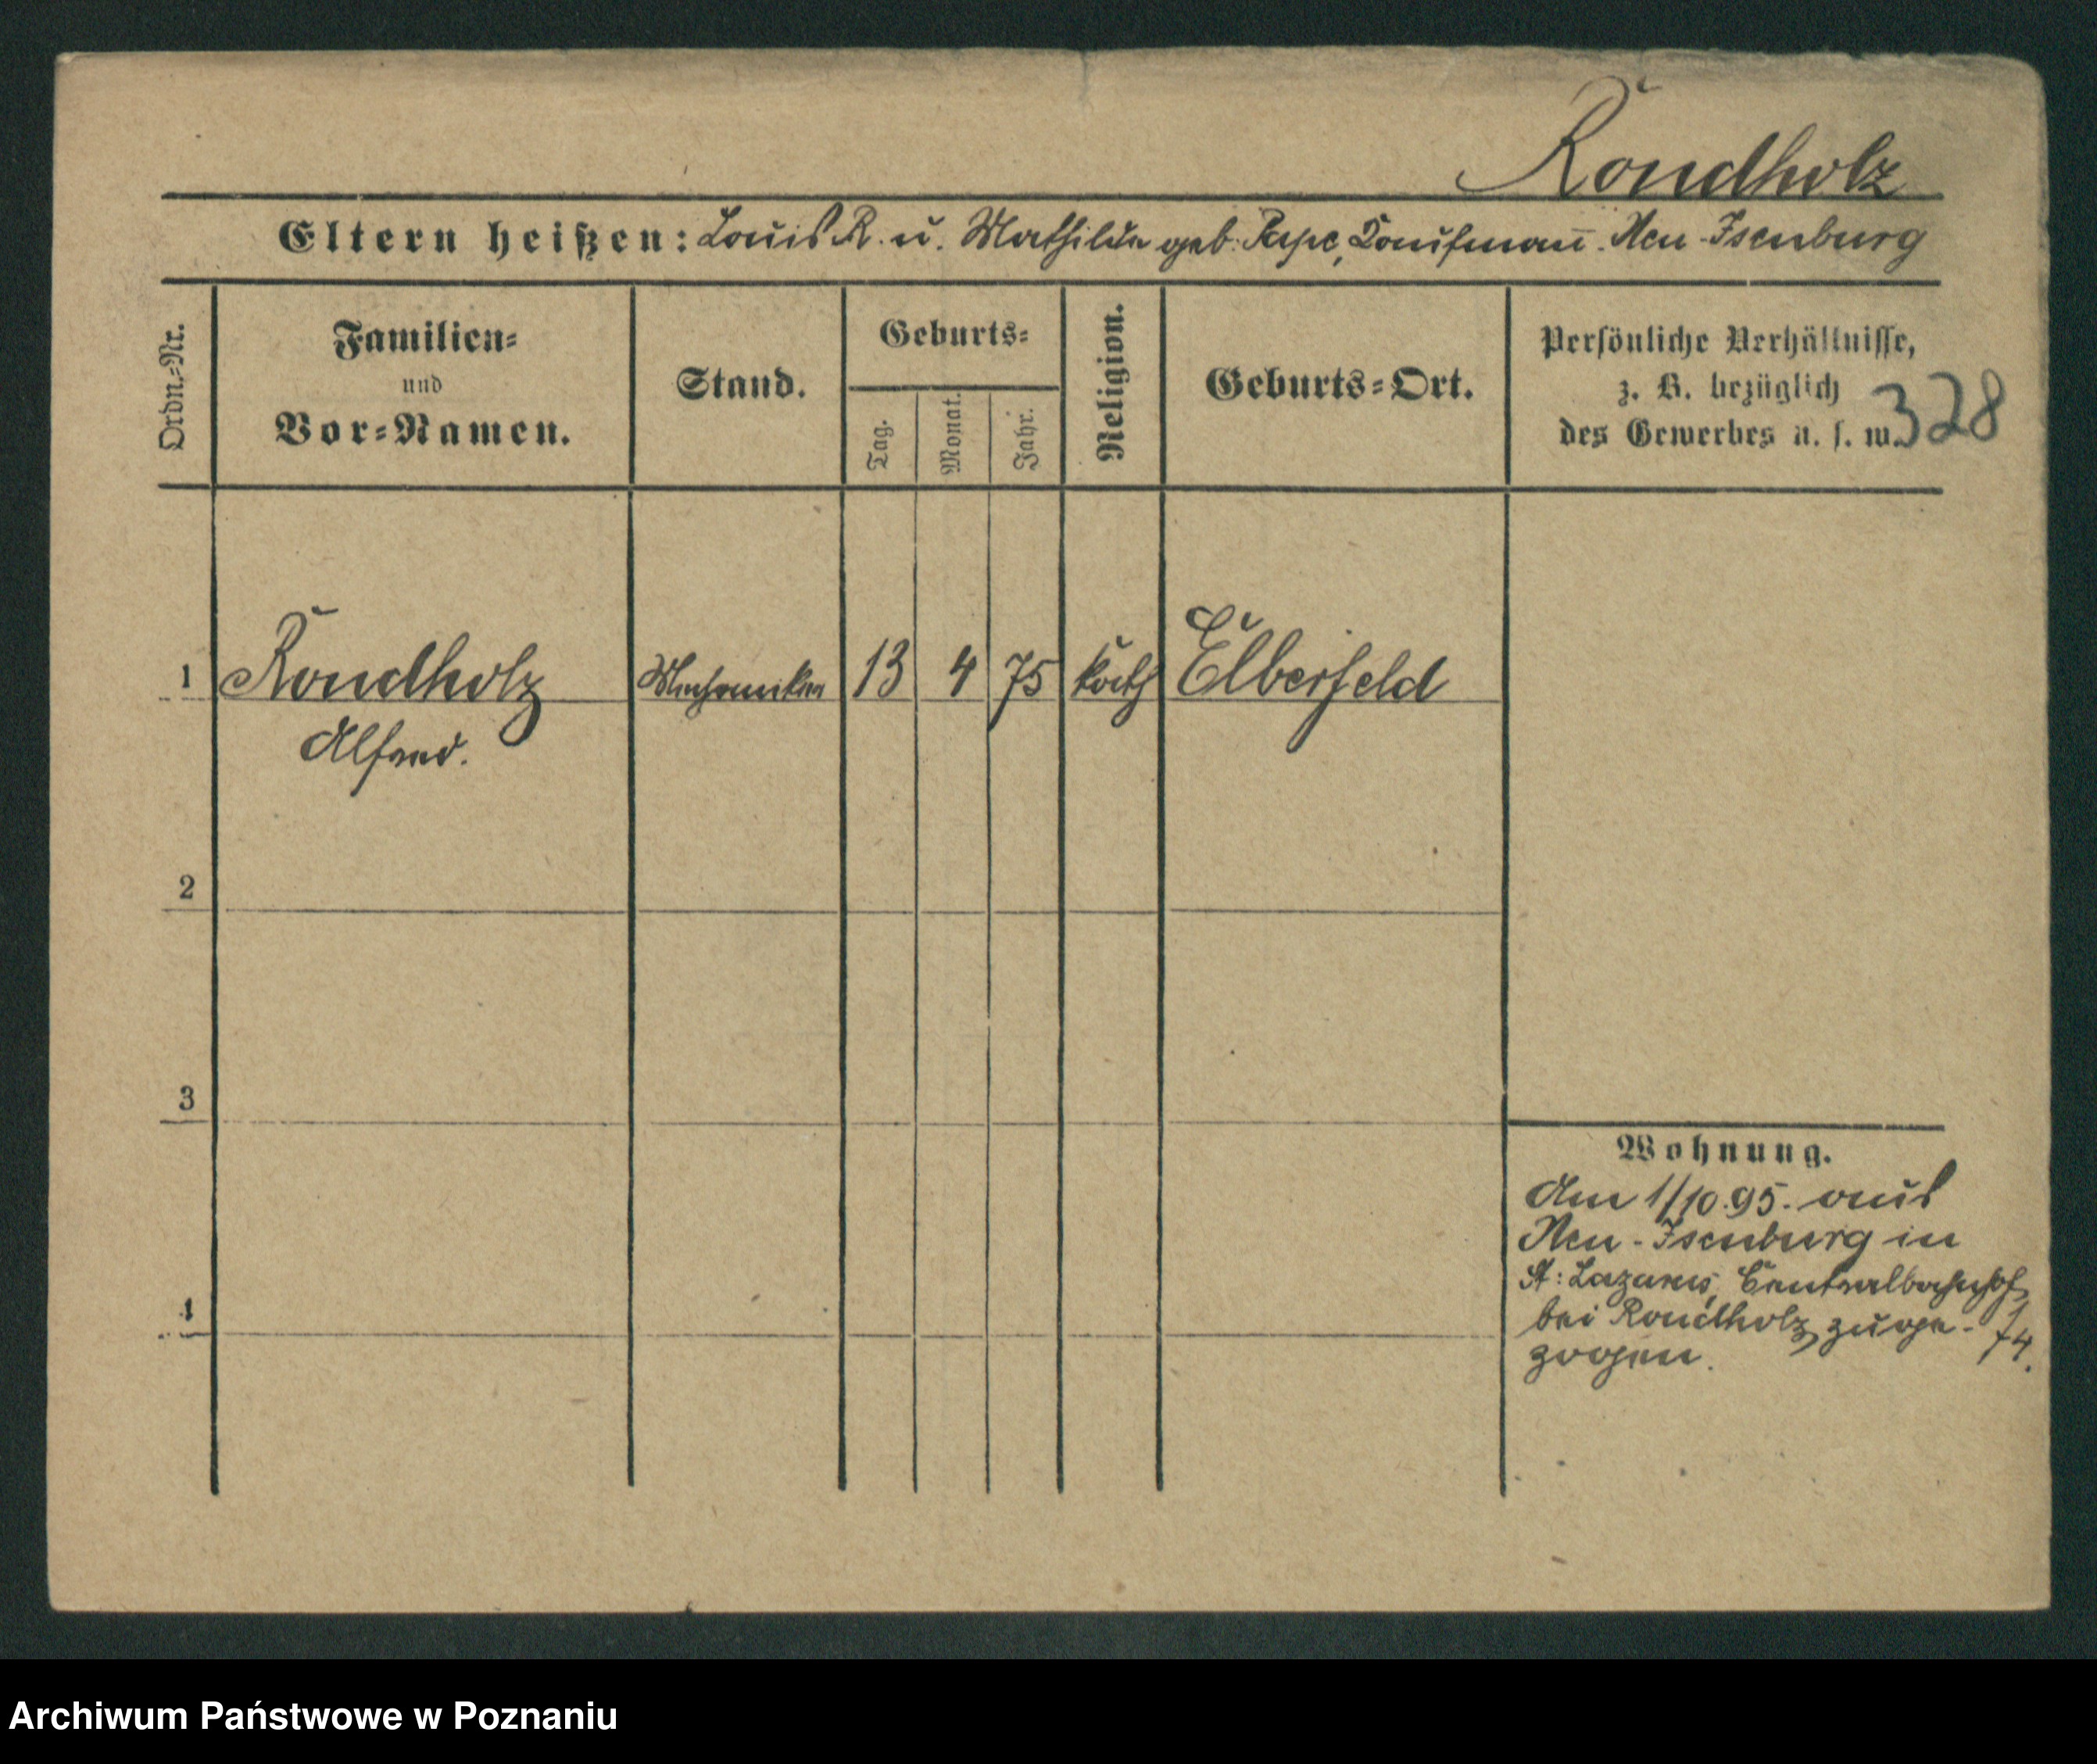 Rondholz
Eltern heißen: Louis R. u. Mathilde geb. Pape, Kaufmann. Neu-Isenburg
Ordn.-Nr.
Familien-
und
Vor-Namen.
Stand.
Geburts-
Tag.
Monat.
Jahr.
Religion.
Geburts-Ort.
Persönliche Verhältnisse,
z. B. bezüglich
des Gewerbes u. s. w.
328
1 Rondholz Mechaniker 13 4 75 kath Elberfeld
Alfred.
2
3
4
Wohnung.
Am 1/10.95. aus
Neu-Isenburg in
St: Lazarus, Centralbahnhof
bei Rondholz zuge-
zogen.
Archiwum Państwowe w Poznaniu